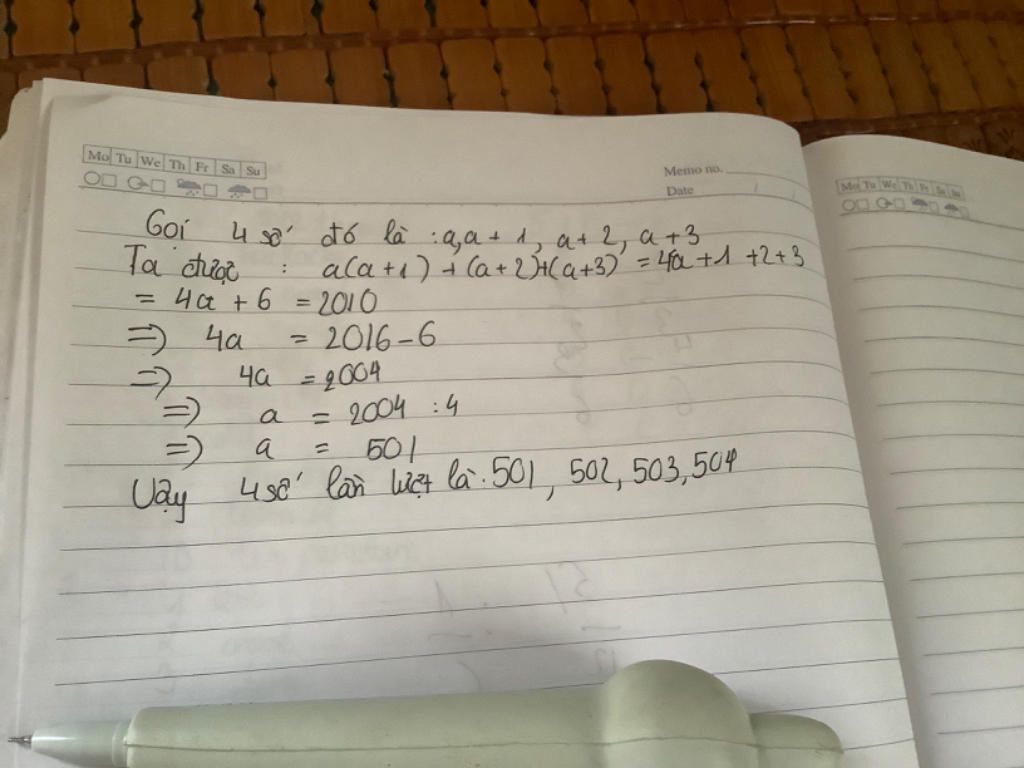 Mo Tu We Th Fr Sa Su
Memo no.
Date
Mo Tu We Th Fr Sa Su
Gọi 4 số đó là : a, a + 1, a + 2, a + 3
Ta được : a(a + 1) + (a + 2)+(a + 3) = 4a + 1 + 2 + 3
= 4a + 6 = 2010
=> 4a = 2016 - 6
=> 4a = 2004
=> a = 2004 : 4
=> a = 501
Vậy 4 số lần lượt là : 501, 502, 503, 504